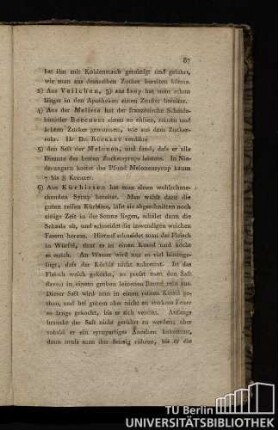 87
hat ihn mit Kohlenstaub gereinigt und gezeigt,
wie man aus demselben Zucker bereiten könne.
2) Aus Veilchen,
länger in den Apotheken einen Zucker bereitet.
3) Aus der Melisse hat der französische Scheide-
künstler einen so süßen, reinen und
schönen Zucker gewonnen, wie aus dem Zucker-
rohr.
5) den Saft der Melonen, und fand, daß er alle
Dienste des besten Zuckersyrups leistete. In Nie-
kostet das Pfund Melonensyrup kaum
7 bis 8 Kreuzer.
6) Aus Kürbissen hat man einen wohlschme-
ckenden Syrup bereitet. Man wählt dazu die
guten reifen Kürbisse, läßt sie abgeschnitten noch
einige Zeit in der Sonne liegen, schälet dann die
Schaale ab, und schneidet die inwendigen weichen
Fasern heraus. Hierauf schneidet man das Fleisch
in Würfel, thut es in einen Kessel und kocht
es weich. An Wasser wird nur so viel hinzuge-
fügt, daß der Kürbis nicht anbrennt. Ist das
Fleisch weich gekocht, so preßt man den Saft
durch in einem groben leinenen Beutel rein aus.
Dieser Saft wird nun in einem reinen Kessel ge-
than, und bei gutem aber nicht zu starkem Feuer
so lange gekocht, bis er sich verdickt. Anfangs
braucht der Saft nicht gerührt zu werden; aber
sobald er ein syrupartiges Ansehen bekommt,
dann muß man ihn fleissig rühren, bis er die
TU Berlin
UNIVERSITÄTSBIBLIOTHEK
http://